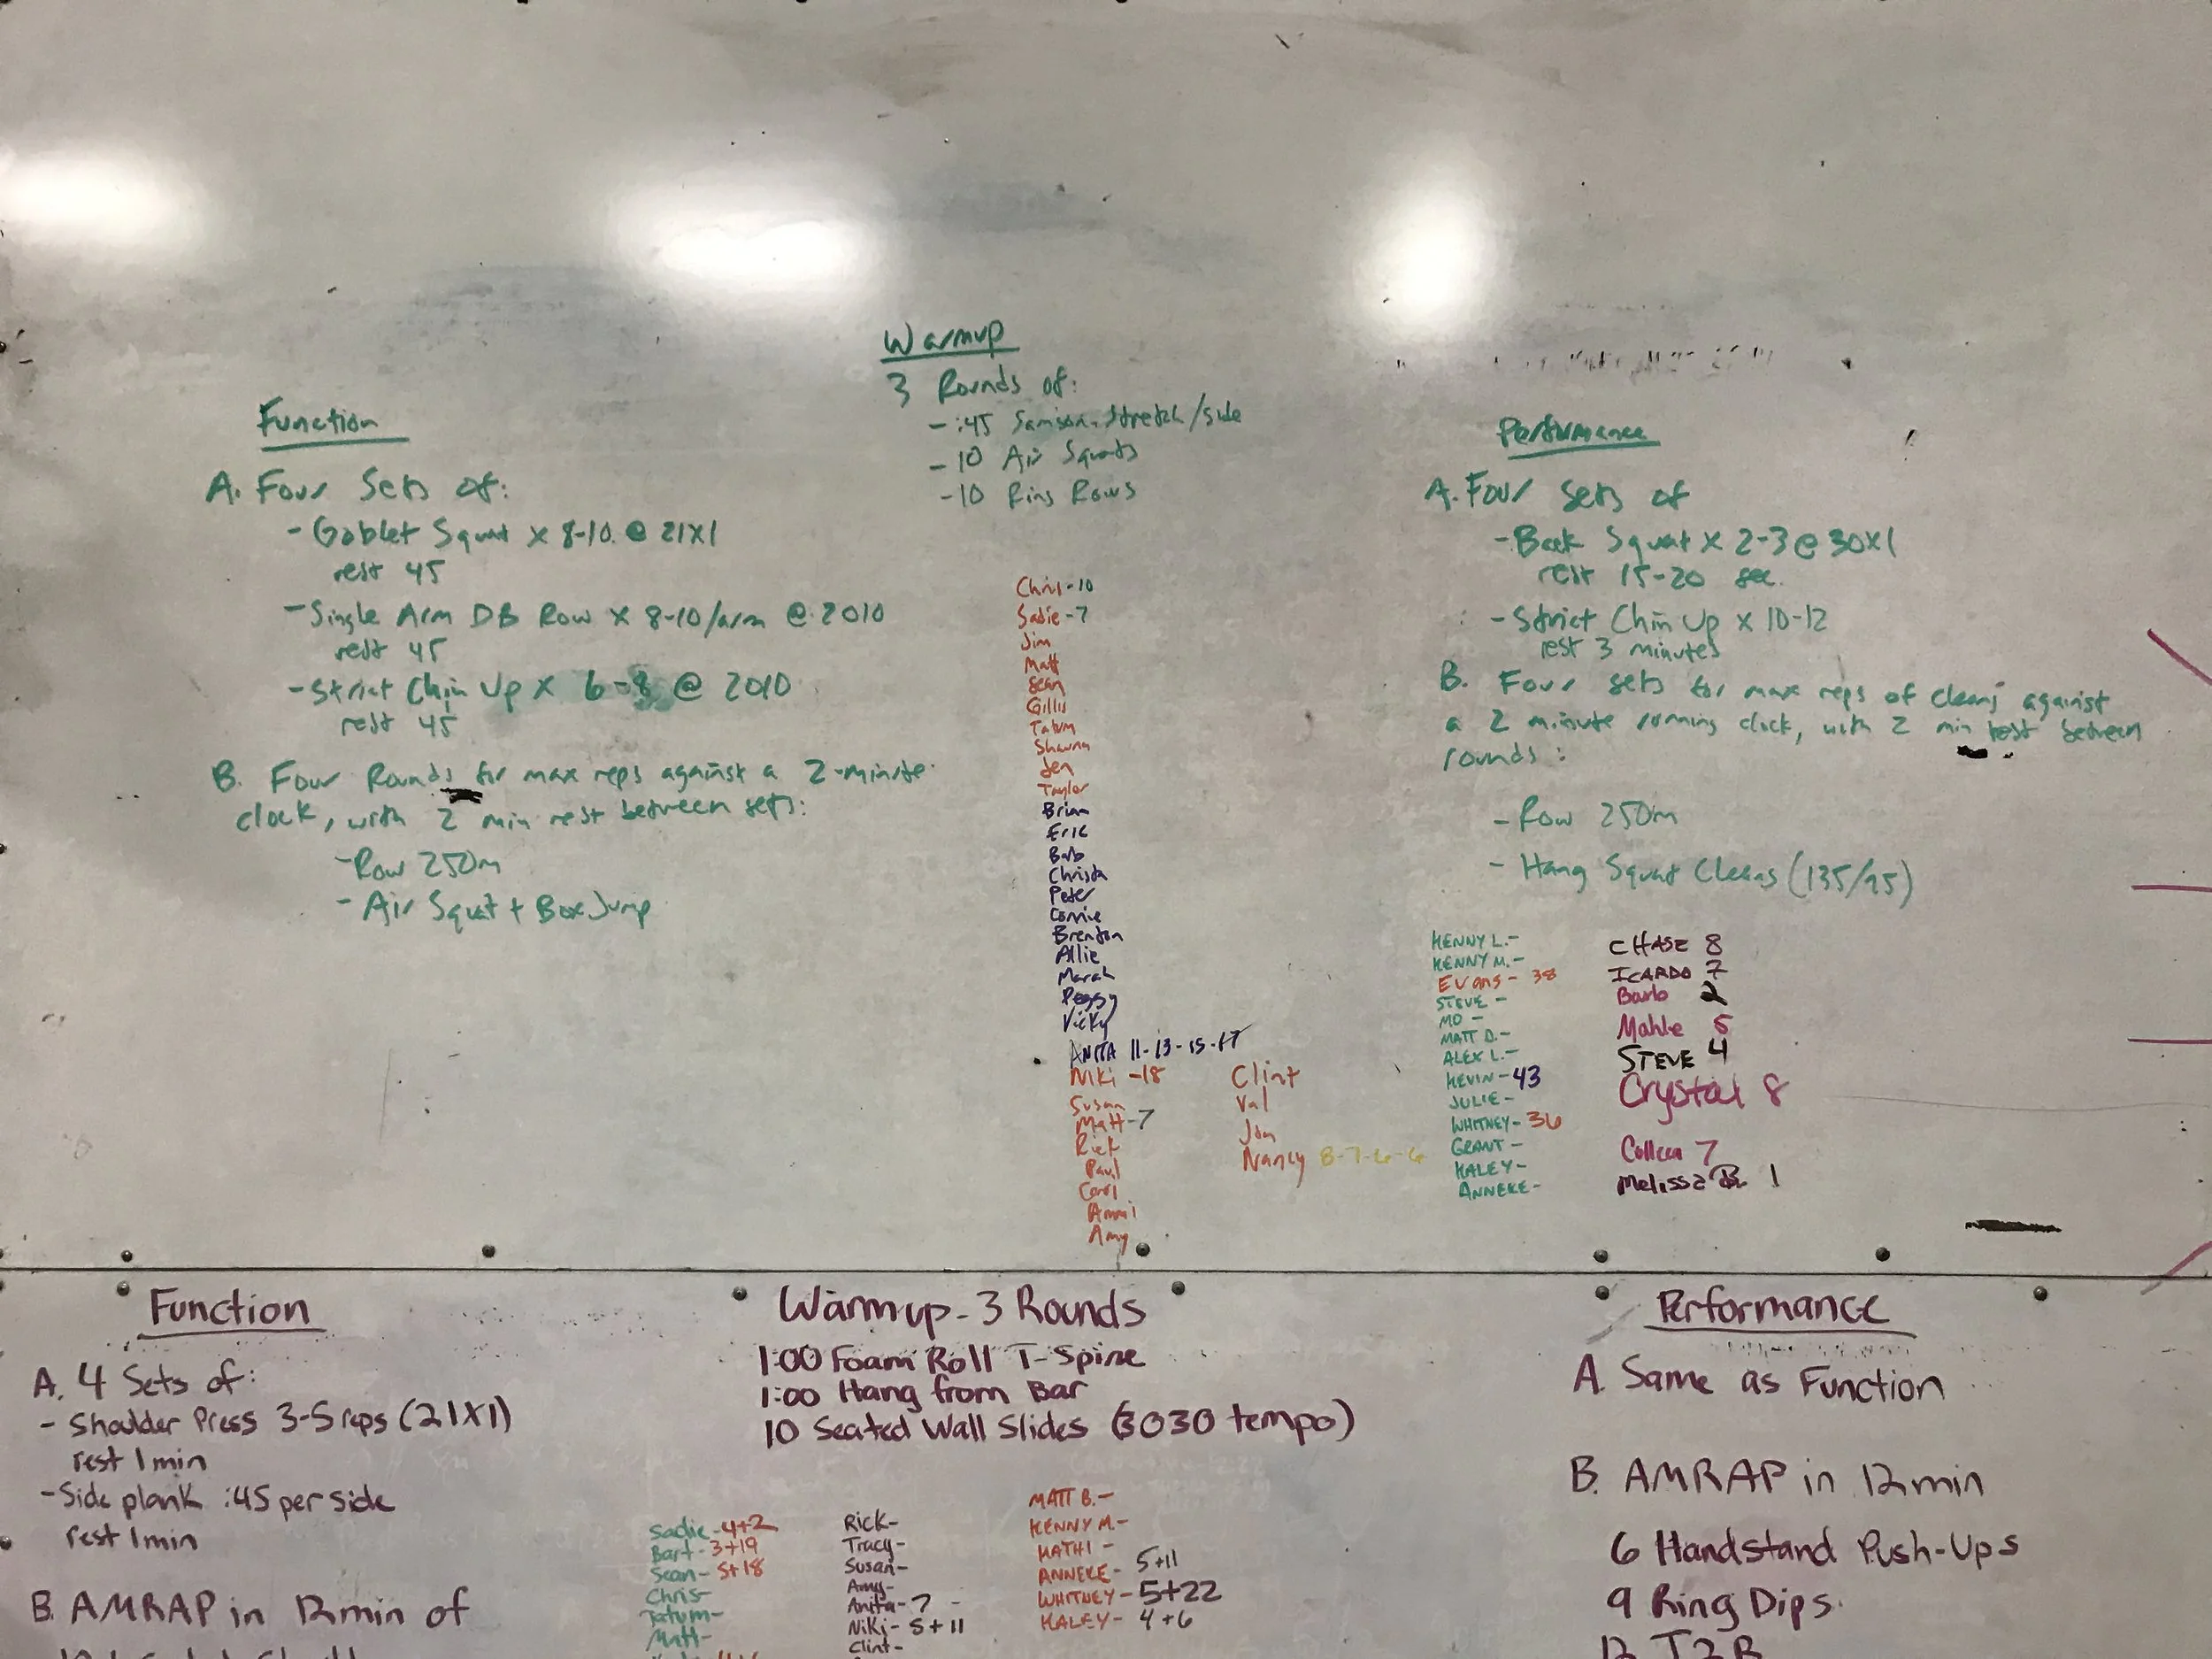 Warmup
3 Rounds of:
- :45 Samson Stretch/side
- 10 Air Squats
- 10 Ring Rows
Function
A. Four Sets of:
- Goblet Squat x 8-10 @ 21X1
rest 45
- Single Arm DB Row x 8-10/arm @ 2010
rest 45
- Strict Chin Up x 6-8 @ 2010
rest 45
B. Four Rounds for max reps against a 2-minute
clock, with 2 min rest between sets:
- Row 250m
- Air Squat + Box Jump
Chris-10
Sadie-7
Jim
Matt
Sean
Gillis
Tatum
Shawna
Jen
Taylor
Brian
Eric
Barb
Christa
Peter
Connie
Brenton
Allie
Marah
Peggy
Vicky
ANITA 11-13-15-17
Niki -18
Susan
Matt-7
Rick
Paul
Carl
Ammi
Amy
Clint
Val
Jon
Nancy 8-7-6-6
Performance
A. Four Sets of
- Back Squat x 2-3 @ 30X1
rest 15-20 sec.
- Strict Chin Up x 10-12
rest 3 minutes
B. Four sets for max reps of cleans against
a 2 minute running clock, with 2 min rest between
rounds:
- Row 250m
- Hang Squat Cleans (135/95)
KENNY L.-
KENNY M.-
Evans- 38
STEVE -
MO -
MATT D.-
ALEX L.-
KEVIN-43
JULIE-
WHITNEY-36
GRANT -
HALEY-
ANNEKE-
CHASE 8
ICARDO 7
Barb 2
Mahle 5
STEVE 4
Crystal 8
Colleen 7
Melissa B. 1
Function
A. 4 Sets of:
- Shoulder Press 3-5 reps (21X1)
rest 1 min
- Side plank :45 per side
rest 1 min
B. AMRAP in 12 min of
Warmup - 3 Rounds
1:00 Foam Roll T-Spine
1:00 Hang from Bar
10 Seated Wall Slides (3030 tempo)
Sadie-4+2
Bart-3+19
Sean-5+18
Chris-
Tatum-
Matt-
Rick-
Tracy-
Susan-
Amy-
Anita-7 -
Niki-5+11
Clint-
MATT B.-
KENNY M.-
KATHI -
ANNEKE- 5+11
WHITNEY-5+22
HALEY- 4+6
Performance
A. Same as Function
B. AMRAP in 12 min
6 Handstand Push-Ups
9 Ring Dips
12 T2B